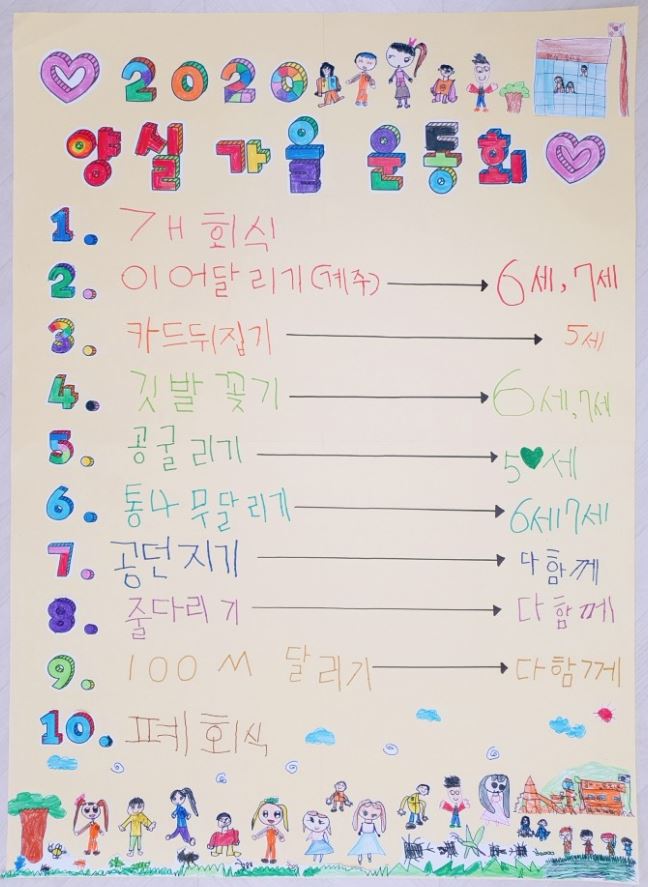 2020
양실 가을 운동회
1. 개회식
2. 이어달리기(계주) 6세, 7세
3. 카드뒤집기 5세
4. 깃발 꽂기 6세, 7세
5. 공굴리기 5세
6. 통나무달리기 6세 7세
7. 공던지기 다함께
8. 줄다리기 다함께
9. 100M 달리기 다함께
10. 폐회식